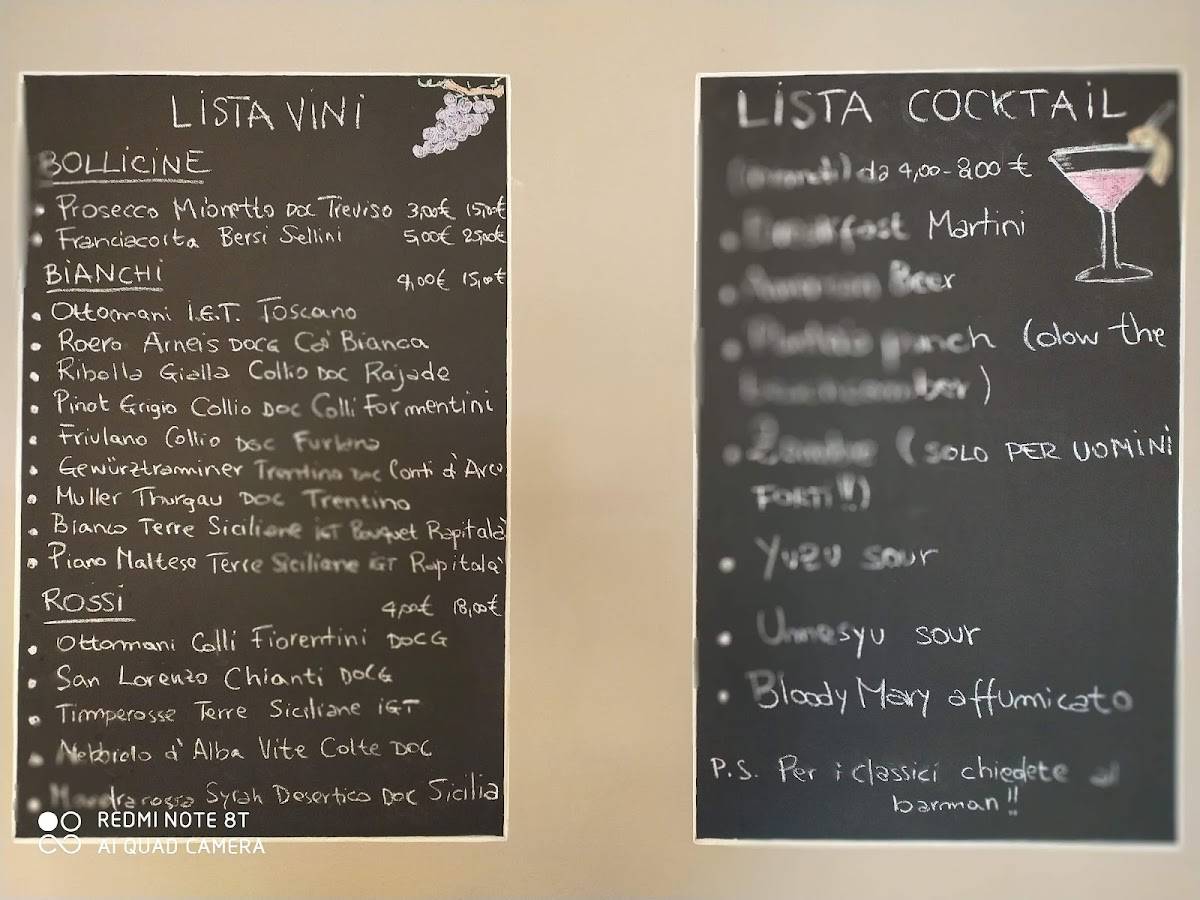 LISTA VINI
BOLLICINE
Prosecco Mionetto DOC Treviso 3,00€ 15,00€
Franciacorta Bersi Sellini 5,00€ 25,00€
BIANCHI 4,00€ 15,00€
Ottomani I.G.T. Toscano
Roero Arneis DOCG Ca' Bianca
Ribolla Gialla Collio DOC Rajade
Pinot Grigio Collio DOC Colli Formentini
Friulano Collio DOC Furlano
Gewürztraminer Trentino DOC Conti d'Arco
Muller Thurgau DOC Trentino
Bianco Terre Siciliane IGT Bouquet Rapitalà
Piano Maltese Terre Siciliane IGT Rapitalà
ROSSI 4,00€ 18,00€
Ottomani Colli Fiorentini DOCG
San Lorenzo Chianti DOCG
Timperosse Terre Siciliane IGT
Nebbiolo d'Alba Vite Colte DOC
Syrah Desertico DOC Sicilia
REDMI NOTE 8T
AI QUAD CAMERA
LISTA COCKTAIL
da 4,00-8,00€
Breakfast Martini
Beer
punch (olow the
)
Zombie (SOLO PER UOMINI
FORTI!!)
Yuzu sour
sour
Bloody Mary affumicato
P.S. Per i classici chiedete al
barman!!